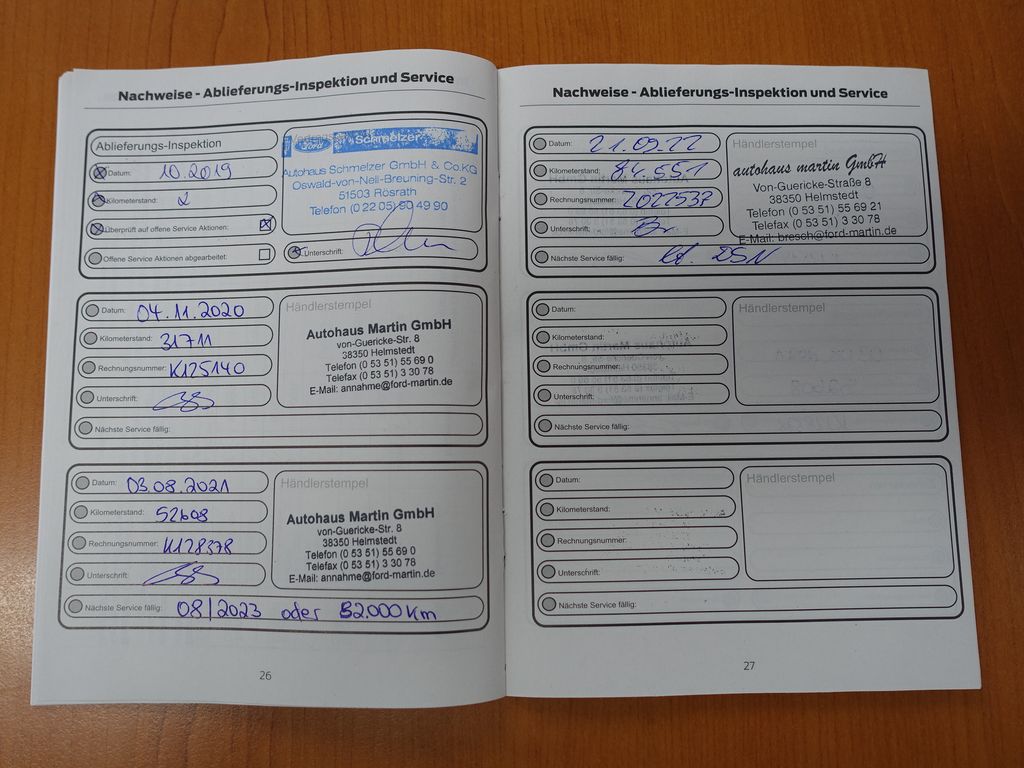 Nachweise - Ablieferungs-Inspektion und Service
Ablieferungs-Inspektion
Datum: 10.2019
Kilometerstand: 2
Überprüft auf offene Service Aktionen:
Offene Service Aktionen abgearbeitet:
Ford Schmelzer
Autohaus Schmelzer GmbH & Co.KG
Oswald-von-Nell-Breuning-Str. 2
51503 Rösrath
Telefon (0 22 05) 90 49 90
Unterschrift:
Datum: 04.11.2020
Kilometerstand: 31711
Rechnungsnummer: K125140
Unterschrift:
Händlerstempel
Autohaus Martin GmbH
von-Guericke-Str. 8
38350 Helmstedt
Telefon (0 53 51) 55 69 0
Telefax (0 53 51) 3 30 78
E-Mail: annahme@ford-martin.de
Nächste Service fällig:
Datum: 03.08.2021
Kilometerstand: 52608
Rechnungsnummer: K128378
Unterschrift:
Händlerstempel
Autohaus Martin GmbH
von-Guericke-Str. 8
38350 Helmstedt
Telefon (0 53 51) 55 69 0
Telefax (0 53 51) 3 30 78
E-Mail: annahme@ford-martin.de
Nächste Service fällig: 08/2023 oder 82.000 Km
26
Nachweise - Ablieferungs-Inspektion und Service
Datum: 21.09.22
Kilometerstand: 84.551
Rechnungsnummer: 2022537
Unterschrift:
Händlerstempel
autohaus martin GmbH
Von-Guericke-Straße 8
38350 Helmstedt
Telefon (0 53 51) 55 69 21
Telefax (0 53 51) 3 30 78
E-Mail: bresch@ford-martin.de
Nächste Service fällig: lt. DSN
Datum:
Kilometerstand:
Rechnungsnummer:
Unterschrift:
Händlerstempel
Nächste Service fällig:
Datum:
Kilometerstand:
Rechnungsnummer:
Unterschrift:
Händlerstempel
Nächste Service fällig:
27